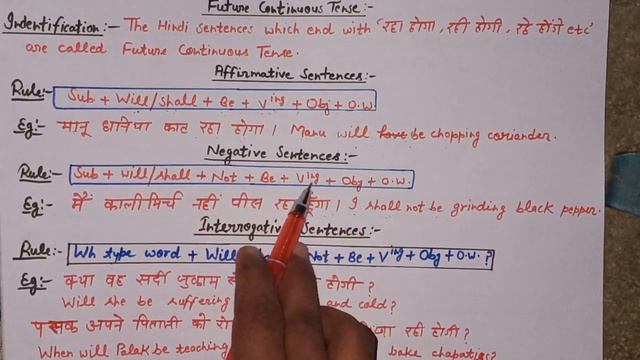 Future Continuous Tense:-
Indentification:- The Hindi Sentences which end with 'रहा होगा, रही होगी, रहे होंगे etc'
are called Future Continuous Tense.
Affirmative Sentences:-
Rule:- Sub + Will/Shall + Be + Ving + Obj + O.W.
Eg:- मानू धनिया काट रहा होगा। Manu will be chopping coriander.
Negative Sentences:-
Rule:- Sub + Will/Shall + Not + Be + Ving + Obj + O.W.
Eg:- मैं कालीमिर्च नहीं पीस रहा हूँगा। I shall not be grinding black pepper.
Interrogative Sentences:-
Rule:- Wh type word + Will Not + Be + Ving + Obj + O.W. ?
Eg:- क्या वह सर्दी जुकाम से होगी ?
Will she be suffering and cold?
पलक अपने पिताजी को रही होगी ?
When will Palak be teaching bake chapatis?